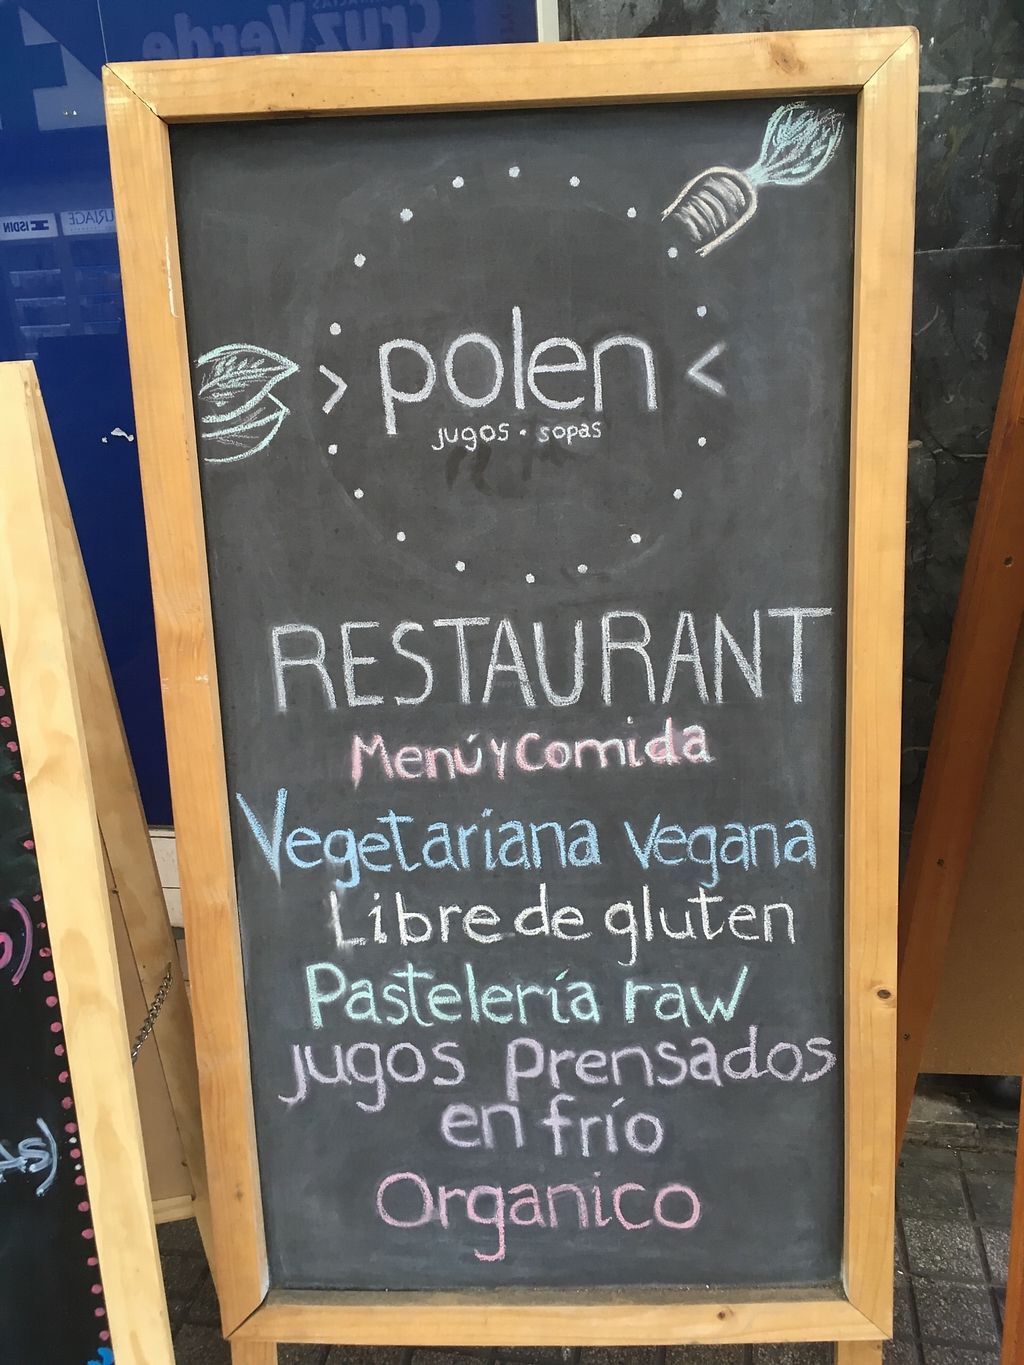 Cruz Verde
ISDIN
URIAGE
> polen <
jugos · sopas
RESTAURANT
Menú y Comida
Vegetariana vegana
Libre de gluten
Pastelería raw
jugos prensados
en frío
Organico